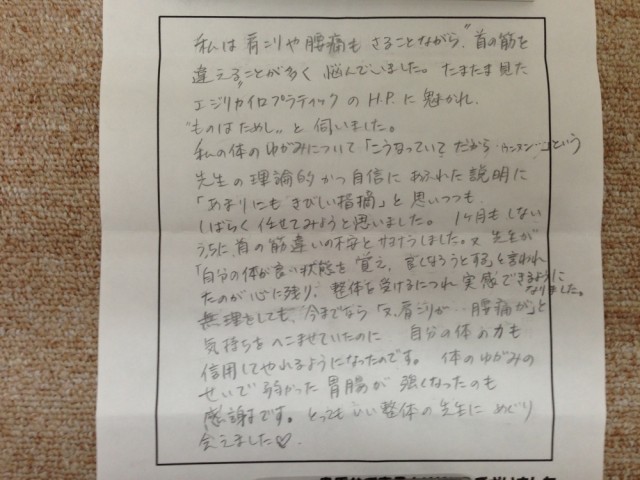 私は肩こりや腰痛もさることながら、首の筋を
違えることが多く悩んでいました。たまたま見た
エジリカイロプラティックのH.P.に魅かれ、
"ものはためし"と伺いました。
私の体のゆがみについて「こうなっていてだから…ウンヌン…」という
先生の理論的かつ自信にあふれた説明に
「あまりにもきびしい指摘」と思いつつも
しばらく任せてみようと思いました。1ヶ月もしない
うちに首の筋違いの不安とサヨナラしました。又、先生が
「自分の体が良い状態を覚え、よくなろうとする」と言われ
たのが心に残り、整体を受けるにつれ実感できるように
なりました。
無理をしても、今までなら「又、肩こりが…腰痛が」と
気持ちをへこませていたのに 自分の体の力も
信用してやれるようになったのです。体のゆがみの
せいで弱かった胃腸が強くなったのも
感謝です。とってもいい整体の先生にめぐり
会えました♡.